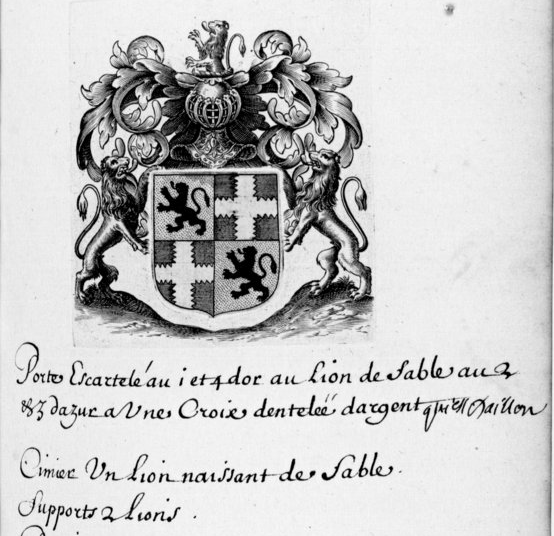 Porte Escartelé au 1 et 4 dor au Lion de Sable au 2
& 3 dazur a Une Croix denteleé dargent qui est Daillon
Cimier Un Lion naissant de Sable.
Supports 2 Lions.